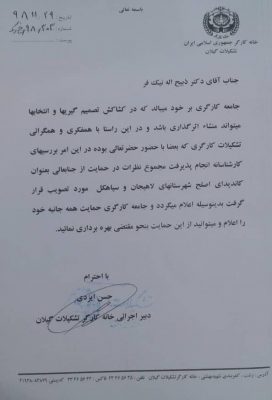 باسمه تعالی
تاریخ: ۹۸،۱۱،۲۹
شماره:
پیوست:
خانه کارگر جمهوری اسلامی ایران
جناب آقای دکتر ذبیح اله نیک فر
جامعه کارگری بر خود میبالد که در کشاکش تصمیم گیریها و انتخابها
میتواند منشاء اثرگذاری باشد و در این راستا با همفکری و همگرائی
تشکیلات کارگری که بعضا با حضور حضرتعالی بوده در این امر بررسیهای
کارشناسانه انجام پذیرفت مجموع نظرات در حمایت از جنابعالی بعنوان
کاندیدای اصلح شهرستانهای لاهیجان و سیاهکل مورد تصویب قرار
گرفت بدینوسیله اعلام میگردد و جامعه کارگری حمایت همه جانبه خود
را اعلام و میتوانید از این حمایت بنحو مقتضی بهره برداری نمائید.
با احترام
حسن ایزدی
دبیر اجرائی خانه کارگر تشکیلات گیلان